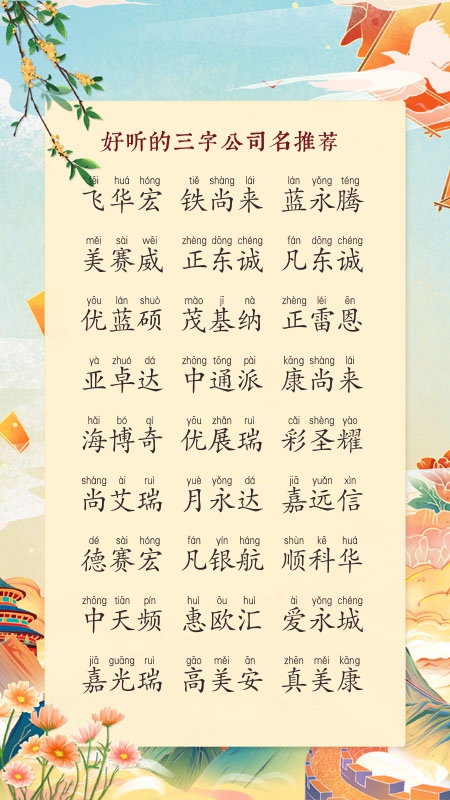 好听的三字公司名推荐
fēi huá hóng tiě shàng lái lán yǒng téng
飞华宏 铁尚来 蓝永腾
měi sài wēi zhèng dōng chéng fán dōng chéng
美赛威 正东诚 凡东诚
yōu lán shuò mào jī nà zhèng léi ēn
优蓝硕 茂基纳 正雷恩
yà zhuó dá zhōng tōng pài kāng shàng lái
亚卓达 中通派 康尚来
hǎi bó qí yōu zhǎn ruì cǎi shèng yào
海博奇 优展瑞 彩圣耀
shàng ài ruì yuè yǒng dá jiā yuǎn xìn
尚艾瑞 月永达 嘉远信
dé sài hóng fán yín háng shùn kē huá
德赛宏 凡银航 顺科华
zhōng tiān pín huì ōu huì ài yǒng chéng
中天频 惠欧汇 爱永城
jiā guāng ruì gāo měi ān zhēn měi kāng
嘉光瑞 高美安 真美康